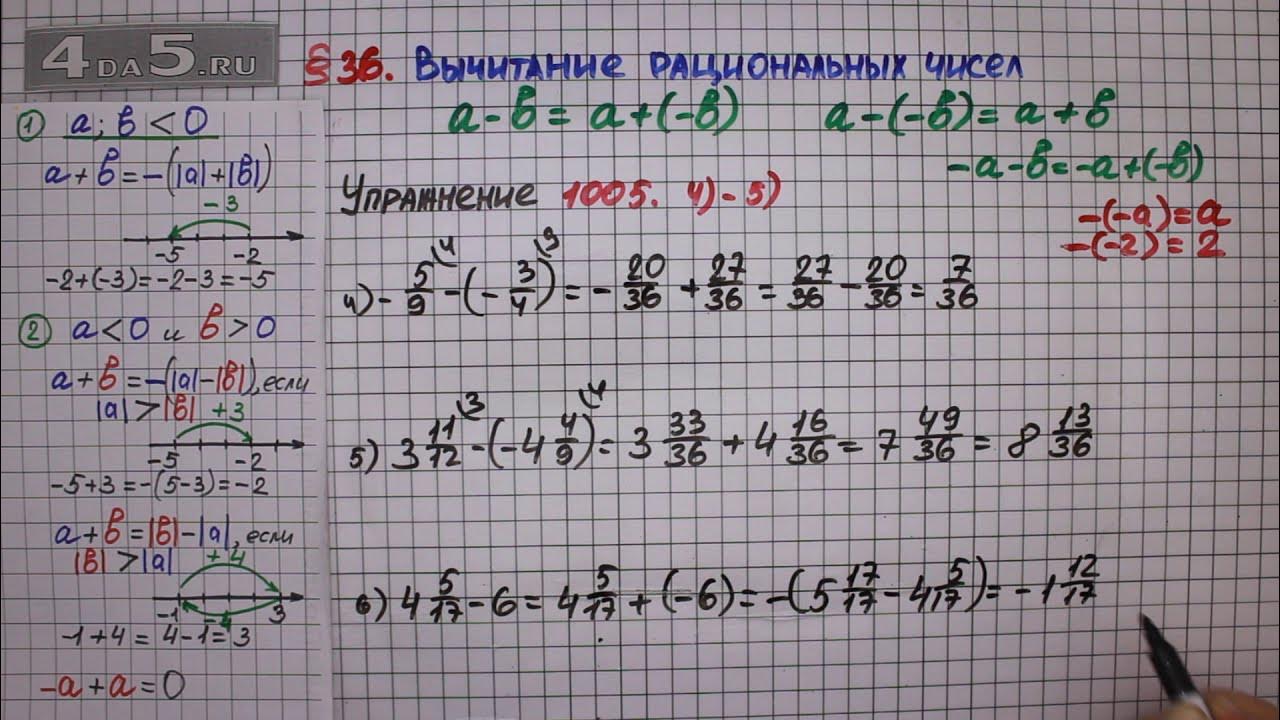 4DA5.RU
§ 36. Вычитание рациональных чисел
a - b = a + (-b)   a - (-b) = a + b
-a - b = -a + (-b)
-(-a) = a
-(-2) = 2
① a; b < 0
a + b = -(|a| + |b|)
-3
-5 -2
-2 + (-3) = -2 - 3 = -5
② a < 0 и b > 0
a + b = -(|a| - |b|), если
|a| > |b| +3
-5 -2
-5 + 3 = -(5 - 3) = -2
a + b = |b| - |a|, если
|b| > |a| +4
-1 -4 3
-1 + 4 = 4 - 1 = 3
-a + a = 0
Упражнение 1005. 4) - 5)
4) - 5/9 \4 - (- 3/4 \9) = - 20/36 + 27/36 = 27/36 - 20/36 = 7/36
5) 3 11/12 \3 - (-4 4/9 \4) = 3 33/36 + 4 16/36 = 7 49/36 = 8 13/36
6) 4 5/17 - 6 = 4 5/17 + (-6) = -(5 17/17 - 4 5/17) = -1 12/17